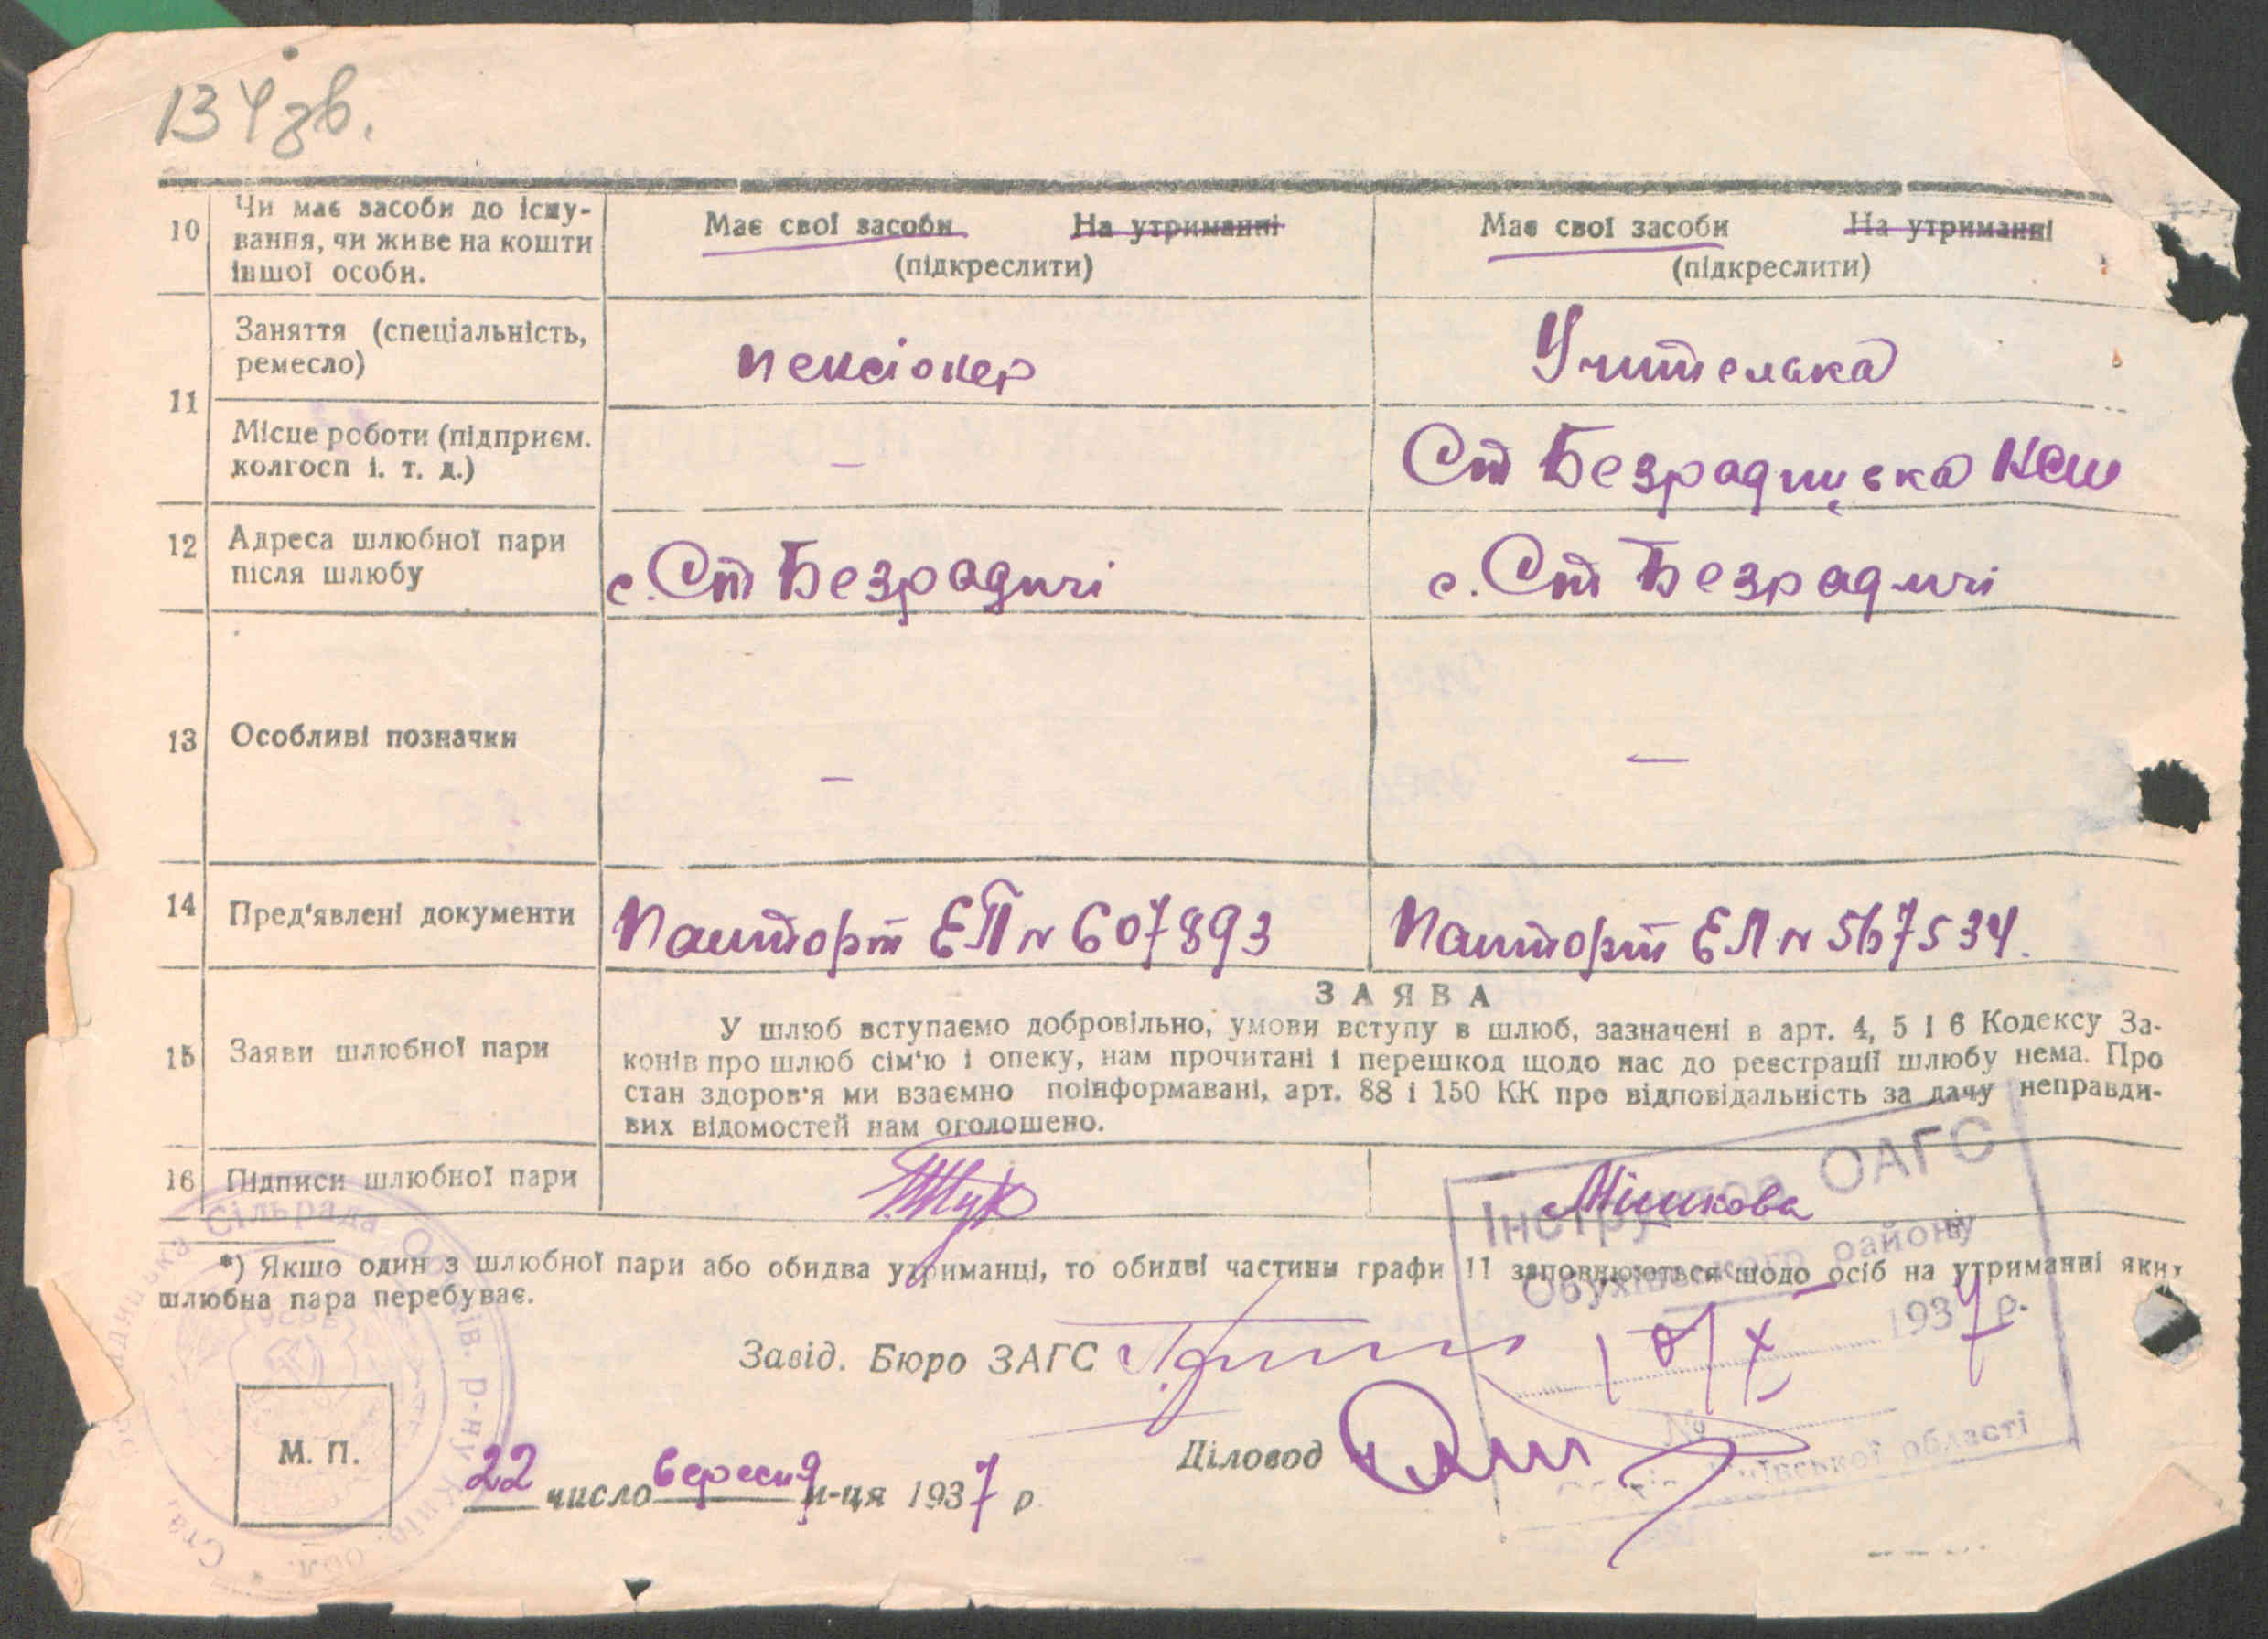 134 зв.
10 Чи має засоби до існу-
вання, чи живе на кошти
іншої особи.
Має свої засоби На утриманні
(підкреслити)
Має свої засоби На утриманні
(підкреслити)
11 Заняття (спеціальність,
ремесло)
пенсіонер
Учителька
Місце роботи (підприєм.
колгосп і. т. д.)
—
Ст Безрадицька НСШ
12 Адреса шлюбної пари
після шлюбу
с. Ст Безрадичі
с. Ст Безрадичі
13 Особливі позначки
—
—
14 Пред'явлені документи
Пашпорт ЕП № 607893
Пашпорт ЕЛ № 567534.
15 Заяви шлюбної пари
ЗАЯВА
У шлюб вступаємо добровільно, умови вступу в шлюб, зазначені в арт. 4, 5 і 6 Кодексу За-
конів про шлюб сім'ю і опеку, нам прочитані і перешкод щодо нас до реєстрації шлюбу нема. Про
стан здоров'я ми взаємно поінформавані, арт. 88 і 150 КК про відповідальність за дачу неправди-
вих відомостей нам оголошено.
16 Підписи шлюбної пари
Мішкова
*) Якщо один з шлюбної пари або обидва утриманці, то обидві частини графи 11 заповнюються щодо осіб на утриманні яких
шлюбна пара перебуває.
Інструктор ОАГС
Обухівського району
1937 р.
№
Київської області
Завід. Бюро ЗАГС
Діловод
М. П.
22 число вересня м-ця 1937 р
Сільрада Обухів. р-ну Київ. обл.
УСРР